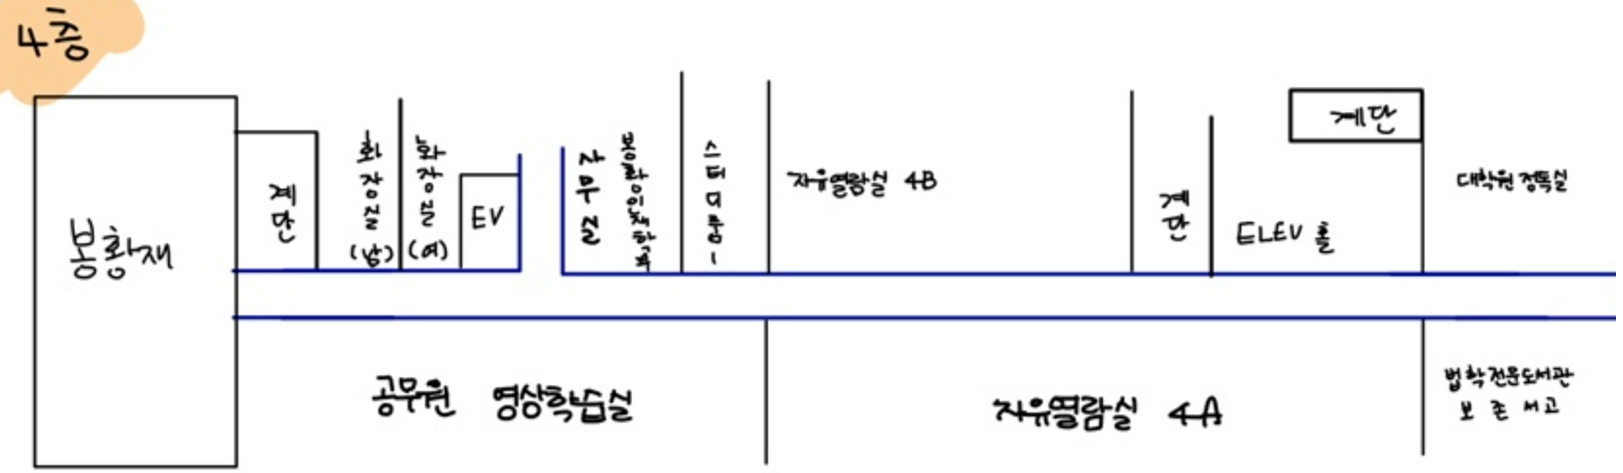 4층
봉황재
계단
화장실
(남)
화장실
(여)
EV
사무실
봉황인재학과
스터디룸1
자유열람실 4B
계단
ELEV 홀
계단
대학원 정독실
공무원 영상학습실
자유열람실 4A
법학전문도서관
보존서고